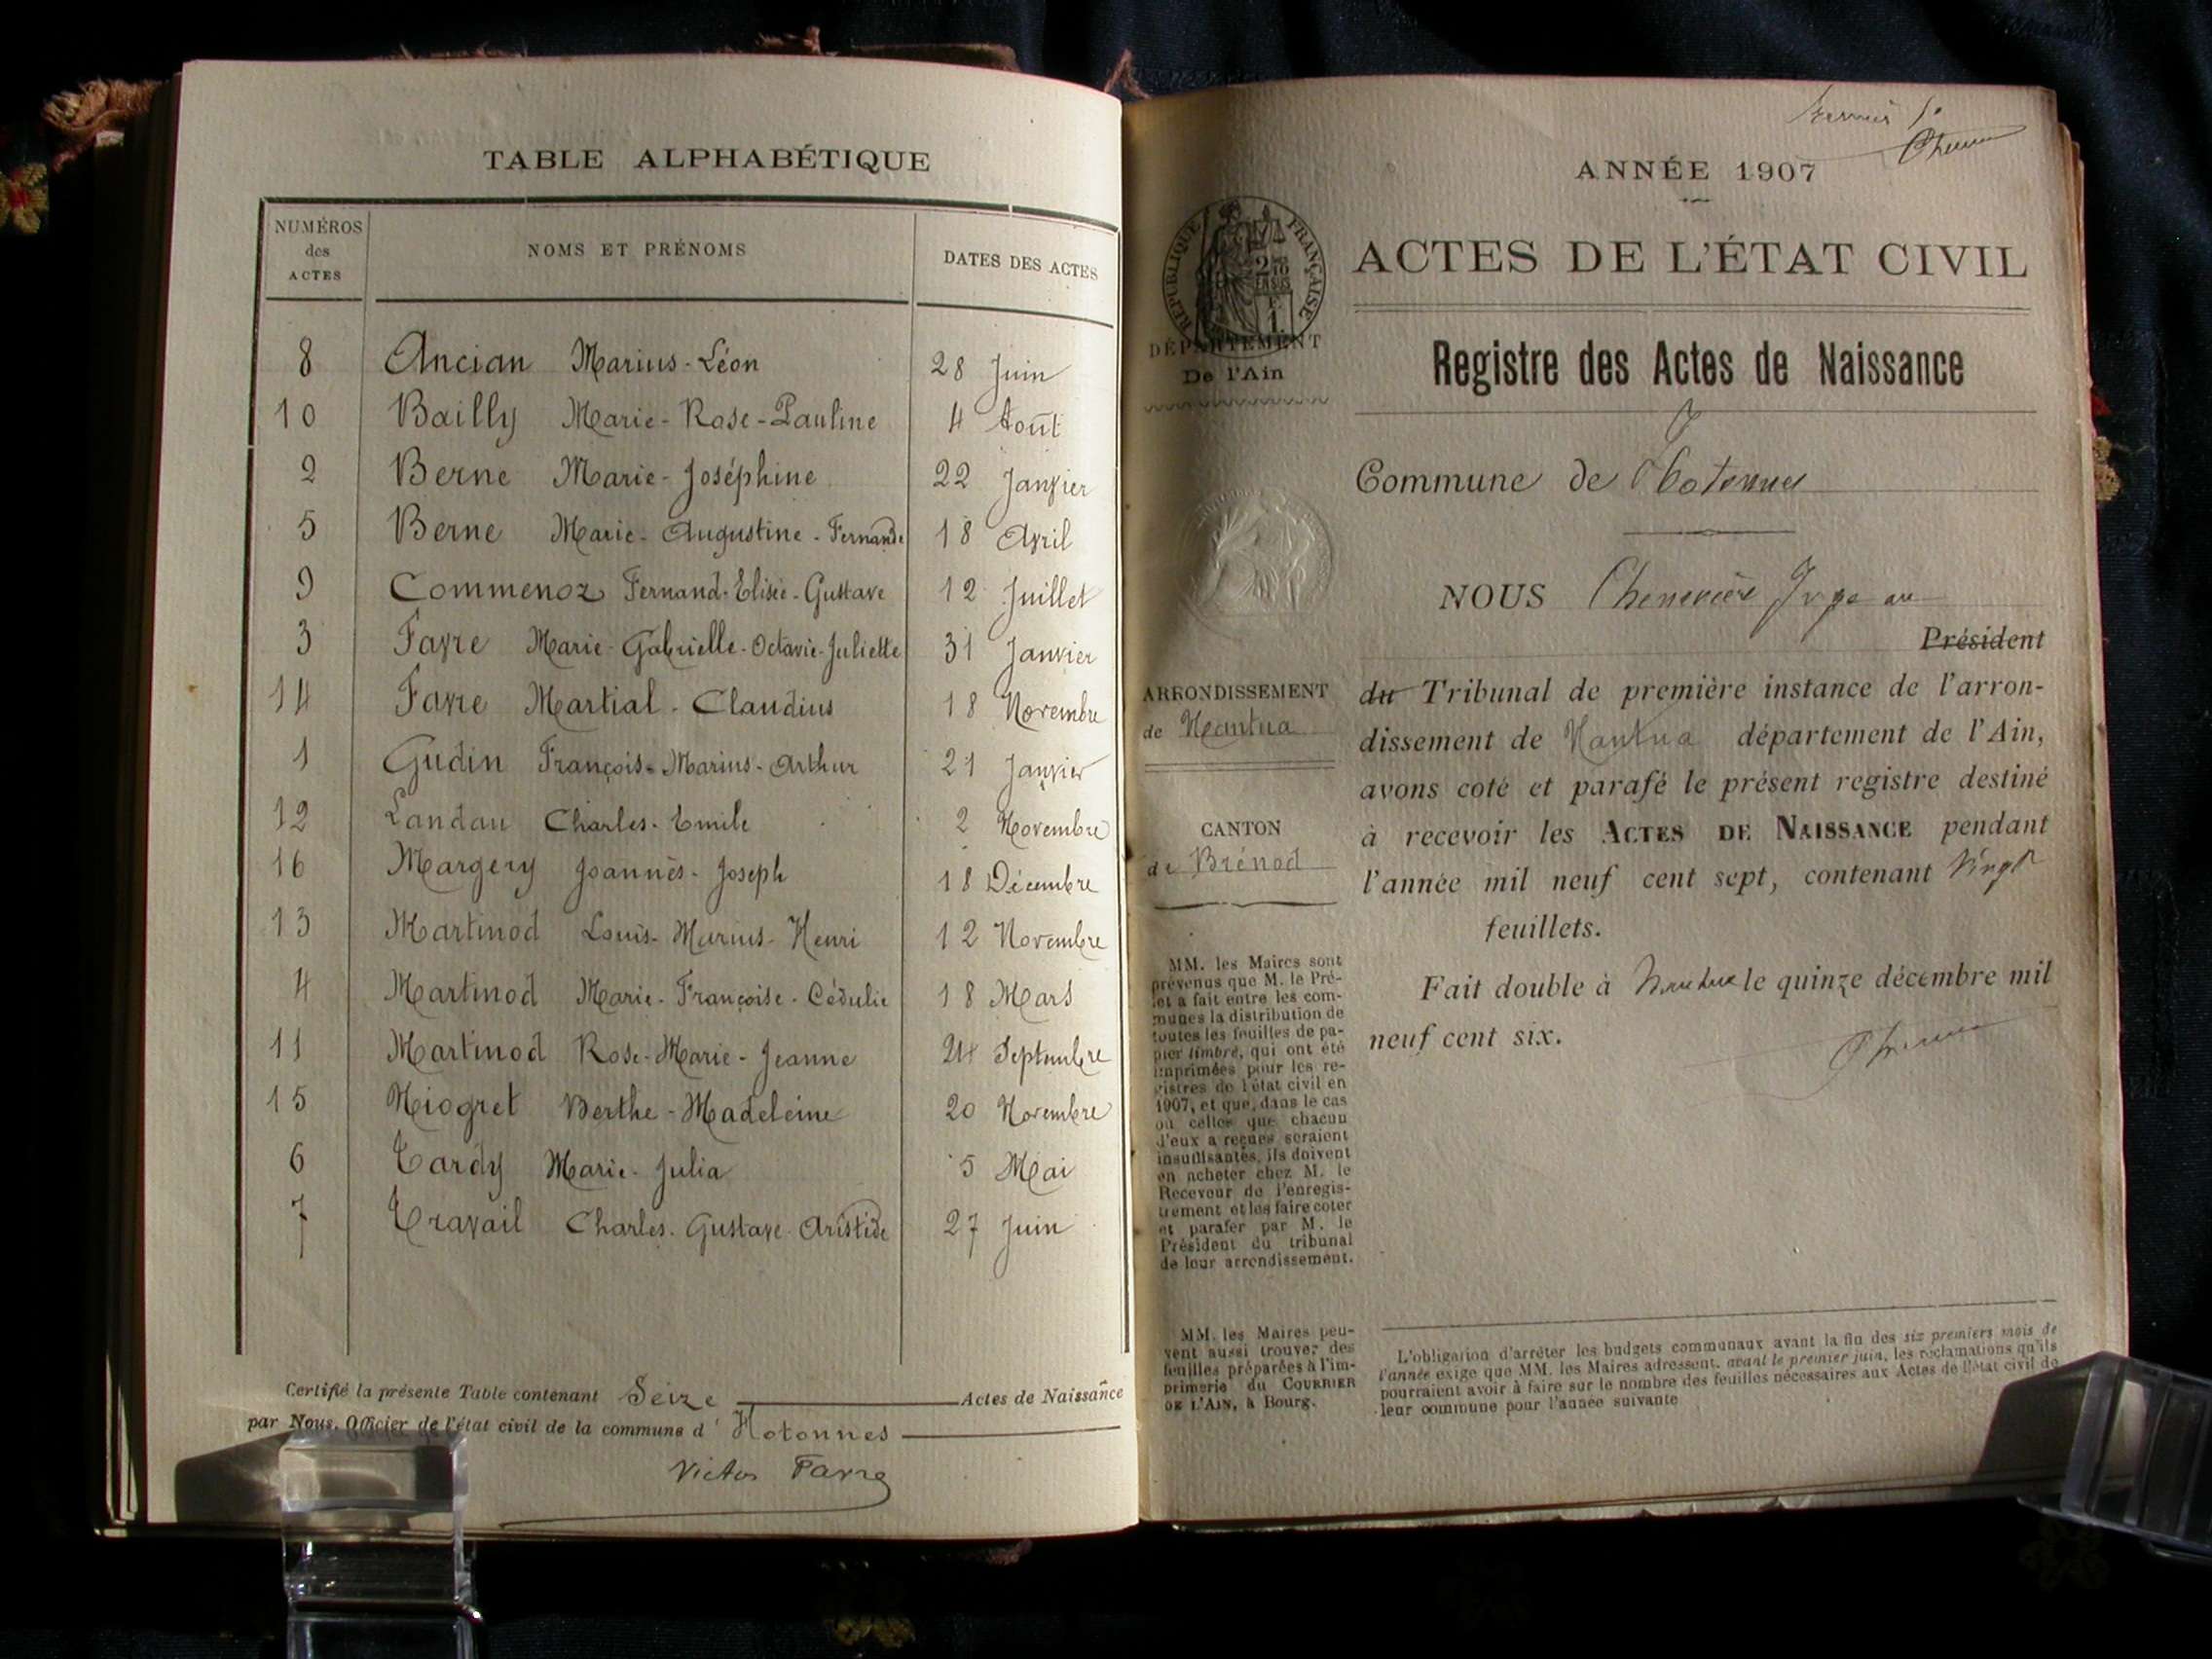 TABLE ALPHABÉTIQUE
NUMÉROS des ACTES
NOMS ET PRÉNOMS
DATES DES ACTES
8 Ancian Marius-Léon 28 Juin
10 Bailly Marie-Rose-Pauline 4 Août
2 Berne Marie-Joséphine 22 Janvier
5 Berne Marie-Augustine-Fernande 18 Avril
9 Commenoz Fernand-Elisée-Gustave 12 Juillet
3 Favre Marie-Gabrielle-Octavie-Juliette 31 Janvier
14 Favre Martial-Claudius 18 Novembre
1 Gudin François-Marius-Arthur 21 Janvier
12 Landau Charles-Emile 2 Novembre
16 Margery Joannès-Joseph 18 Décembre
13 Martinod Louis-Marius-Henri 12 Novembre
4 Martinod Marie-Françoise-Cédulie 18 Mars
11 Martinod Rose-Marie-Jeanne 24 Septembre
15 Niogret Berthe-Madeleine 20 Novembre
6 Tardy Marie-Julia 5 Mai
7 Travail Charles-Gustave-Aristide 27 Juin
Certifié la présente Table contenant Seize Actes de Naissance
par Nous, Officier de l'état civil de la commune d'Hotonnes
Victor Favre
ANNÉE 1907
ACTES DE L'ÉTAT CIVIL
RÉPUBLIQUE FRANÇAISE
DÉPARTEMENT
De l'Ain
Registre des Actes de Naissance
Commune de Hotonnes
NOUS Chenevière Juge au
Président
du Tribunal de première instance de l'arron-
dissement de Nantua département de l'Ain,
avons coté et parafé le présent registre destiné
à recevoir les ACTES DE NAISSANCE pendant
l'année mil neuf cent sept, contenant Vingt
feuillets.
Fait double à Nantua le quinze décembre mil
neuf cent six.
ARRONDISSEMENT
de Nantua
CANTON
de Brénod
MM. les Maires sont
prévenus que M. le Pré-
fet a fait entre les com-
munes la distribution de
toutes les feuilles de pa-
pier timbré, qui ont été
imprimées pour les re-
gistres de l'état civil en
1907, et que, dans le cas
où celles que chacun
d'eux a reçues seraient
insuffisantes, ils doivent
en acheter chez M. le
Receveur de l'enregis-
trement et les faire coter
et parafer par M. le
Président du tribunal
de leur arrondissement.
MM. les Maires peu-
vent aussi trouver des
feuilles préparées à l'im-
primerie du COURRIER
DE L'AIN, à Bourg.
L'obligation d'arrêter les budgets communaux avant la fin des six premiers mois de
l'année exige que MM. les Maires adressent, avant le premier juin, les réclamations qu'ils
pourraient avoir à faire sur le nombre des feuilles nécessaires aux Actes de l'état civil de
leur commune pour l'année suivante